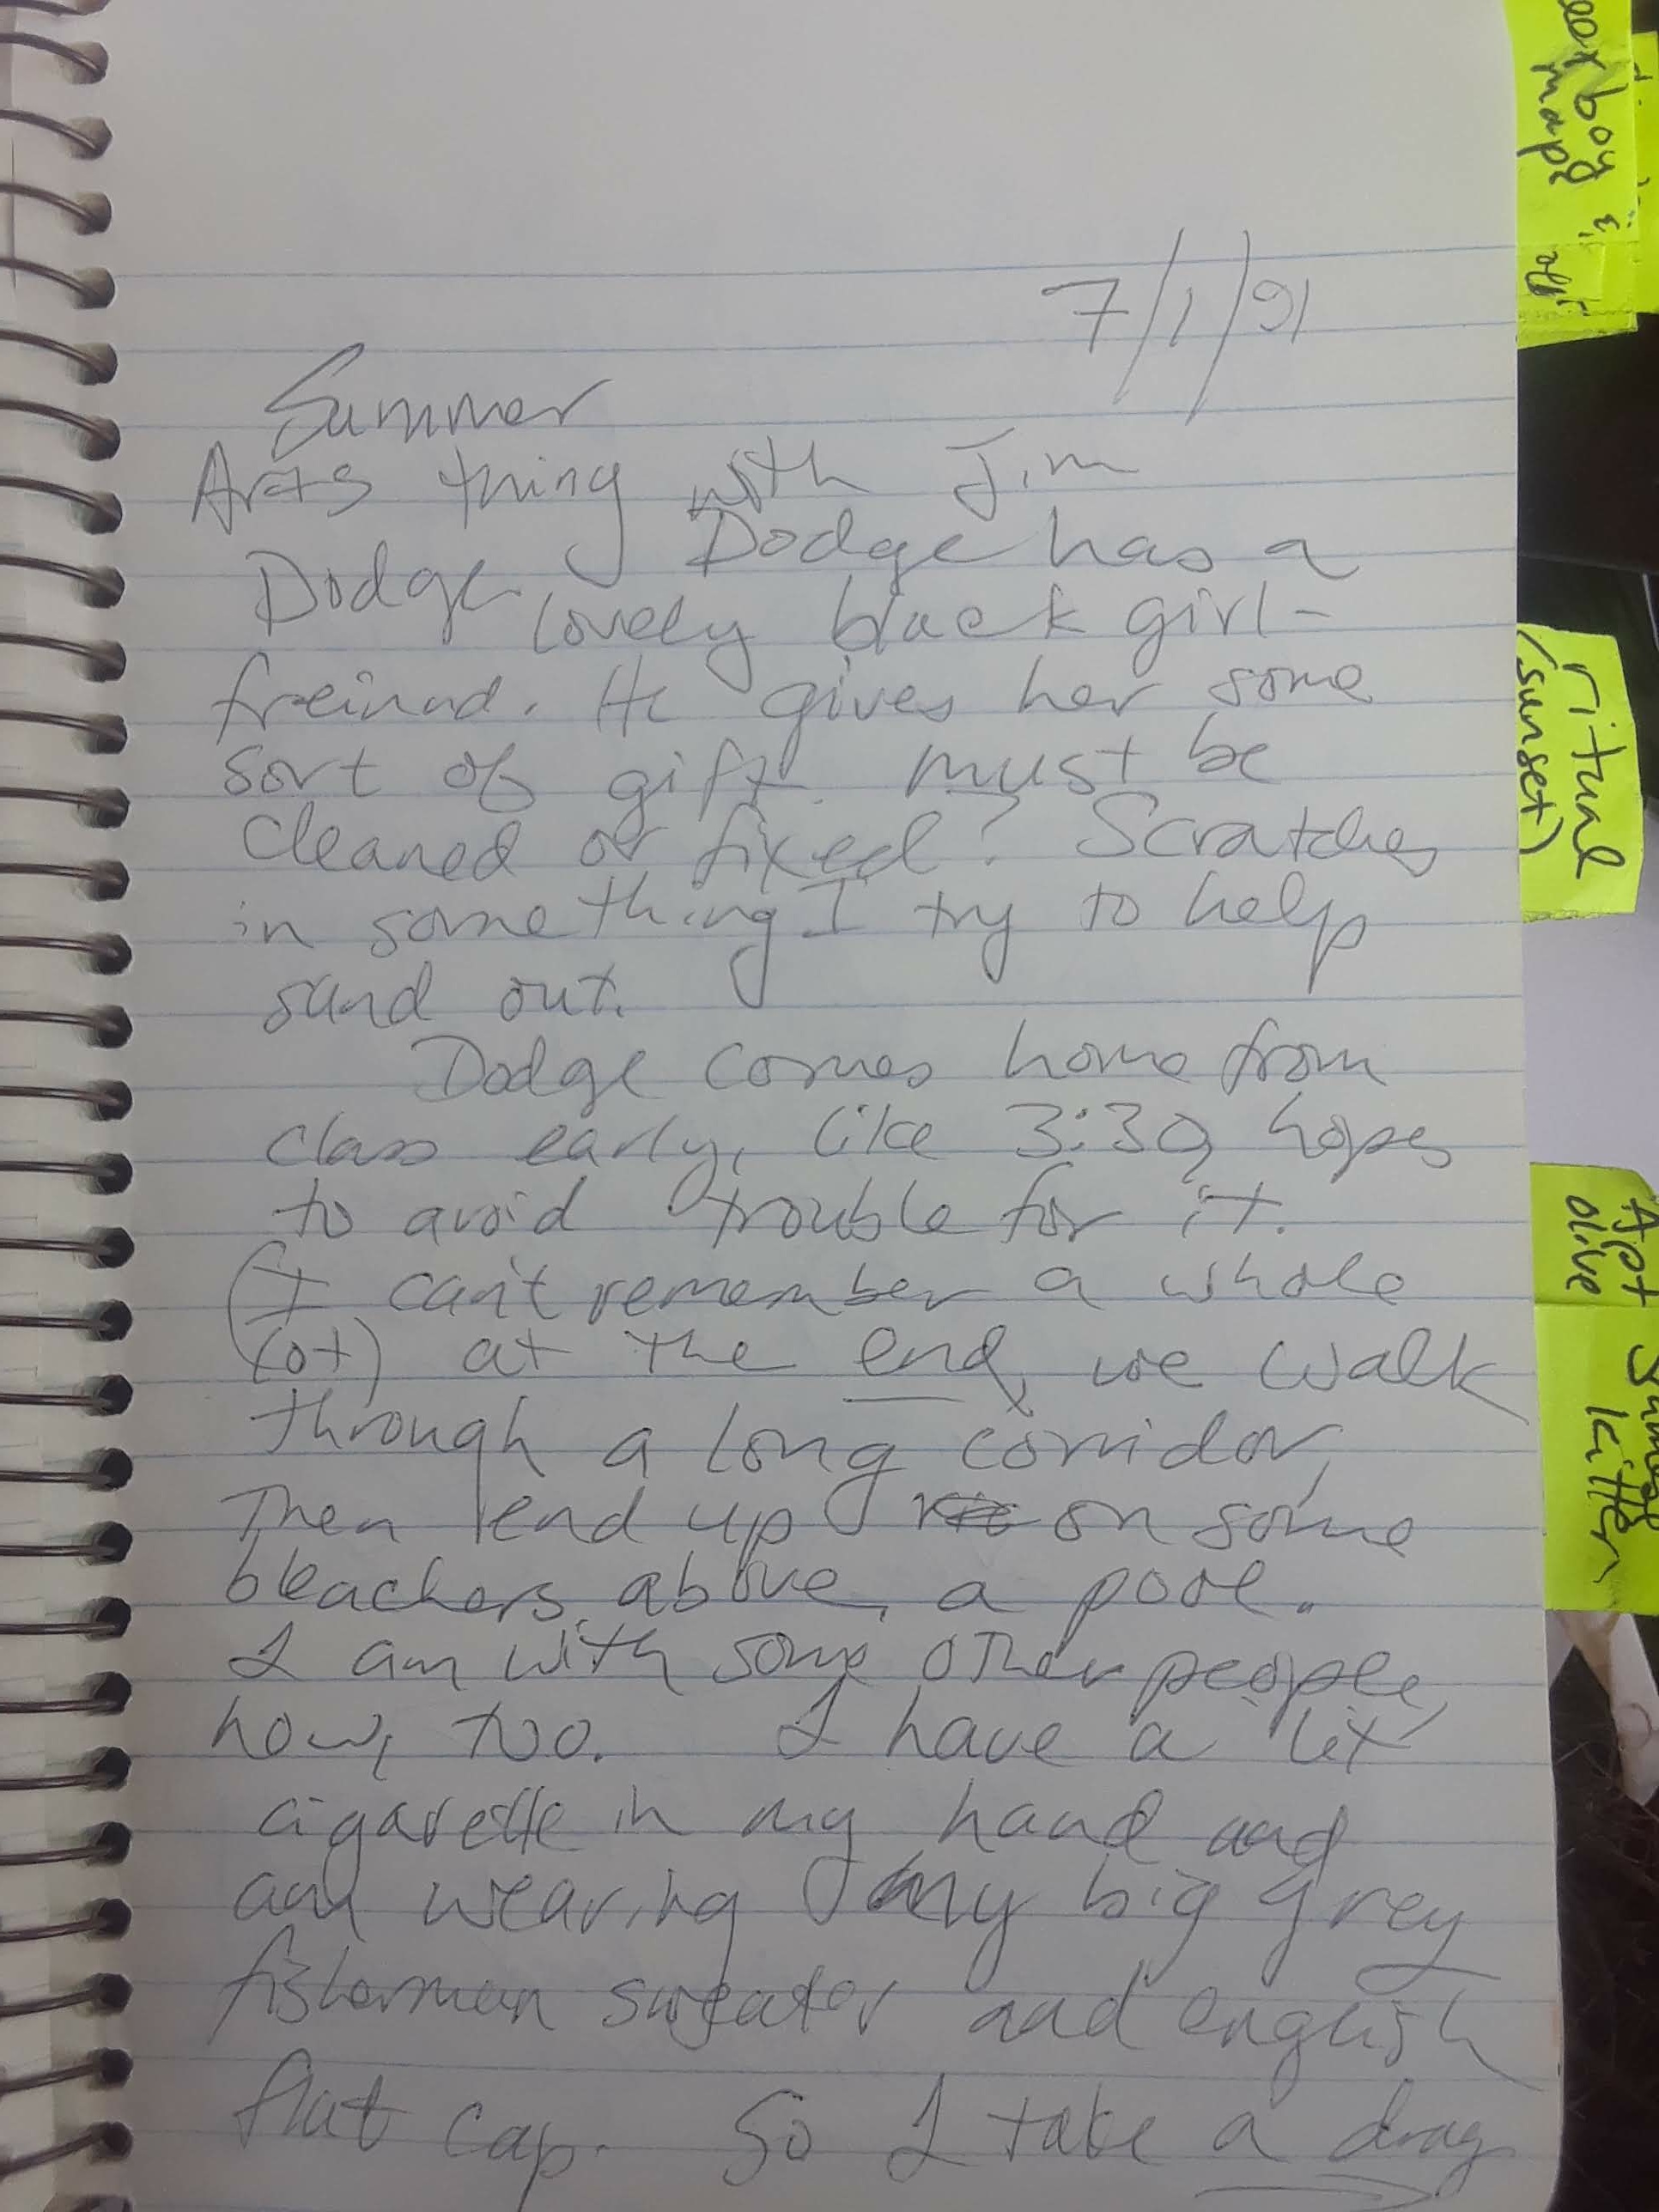 7/1/91
Summer
Arts thing with Jim
Dodge. Dodge has a
lovely black girl-
freinnd. He gives her some
sort of gift. must be
cleaned or fixed? Scratches
in something I try to help
sand out.
Dodge comes home from
class early, like 3:30, hopes
to avoid trouble for it.
(I can't remember a whole
lot) at the end, we walk
through a long corridor,
Then end up on some
bleachers above a pool.
I am with some other people,
now, too. I have a lit
cigarette in my hand and
am wearing my big grey
fisherman sweater and english
flat cap. So I take a drag
boy &
ritual
(sunset)
Apt
olive
kitten